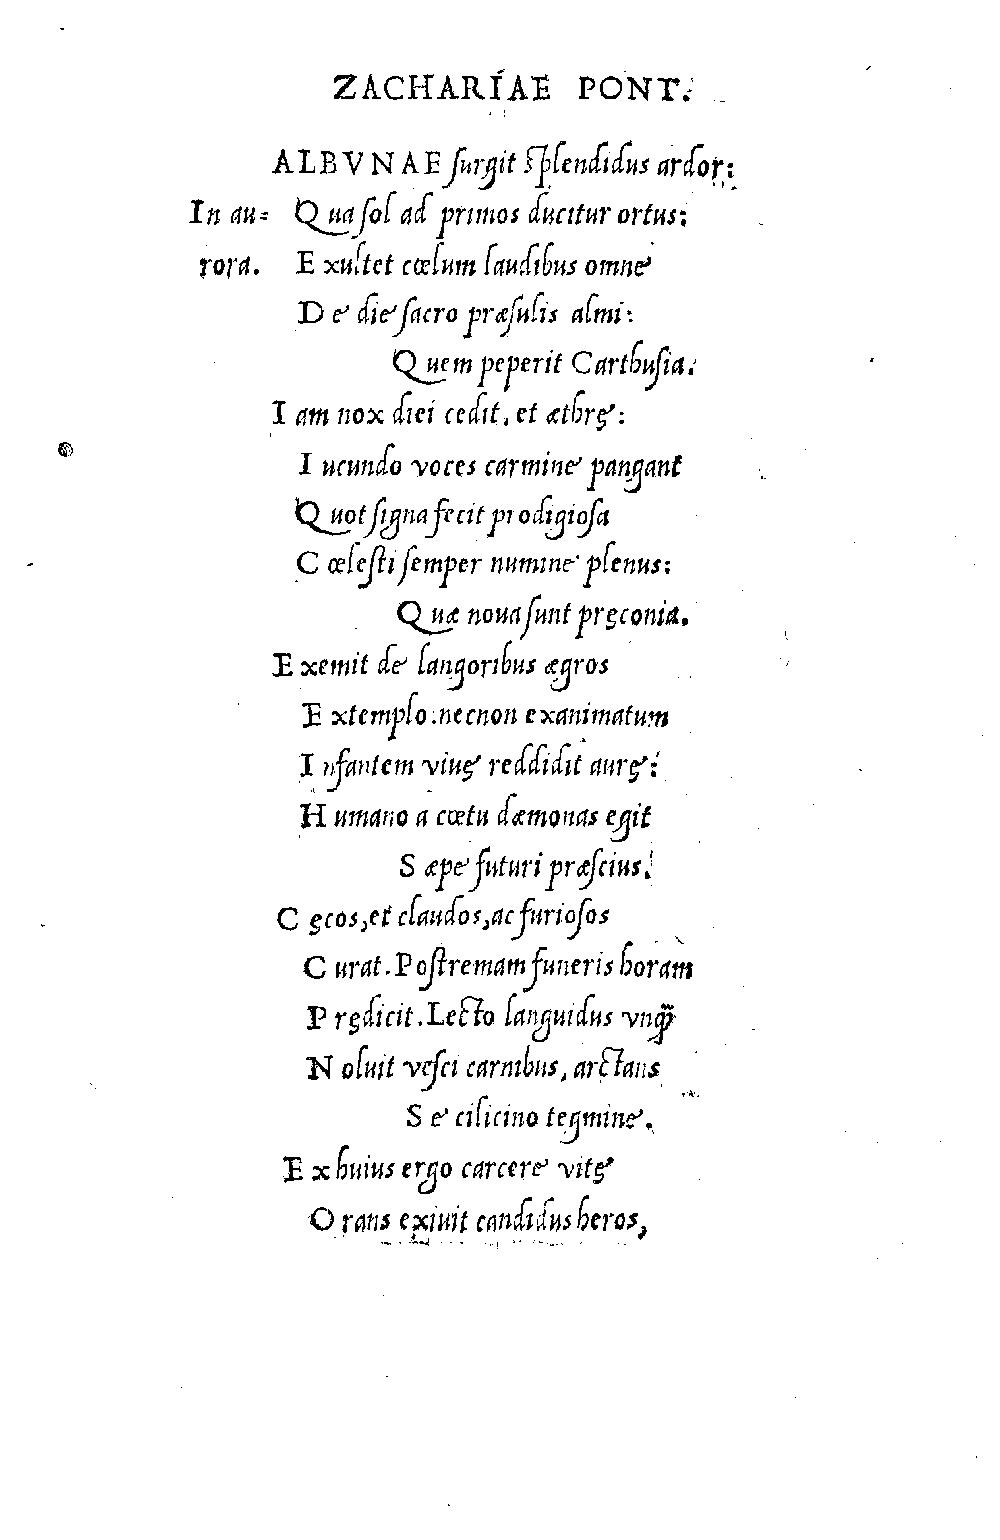 ZACHARÍAE PONT.
ALBVNAE ſurgit ſplendidus ardor:
In au= Qua ſol ad primos ducitur ortus:
rora. Exultet cœlum laudibus omne
De die ſacro præſulis almi:
Quem peperit Carthuſia.
Iam nox diei cedit, et æthrę:
Iucundo voces carmine pangant
Quot ſigna fecit prodigioſa
Cœleſti ſemper numine plenus:
Quæ noua ſunt pręconia.
Exemit de langoribus ægros
Extemplo. necnon exanimatum
Infantem viuę reddidit aurę:
Humano a cœtu dæmonas egit
Sæpe futuri præſcius.
Cęcos, et claudos, ac furioſos
Curat. Poſtremam funeris horam
Prędicit. Lecto languidus vnq̃
Noluit veſci carnibus, arctans
Se cilicino tegmine.
Ex huius ergo carcere vitę
Orans exiuit candidus heros,